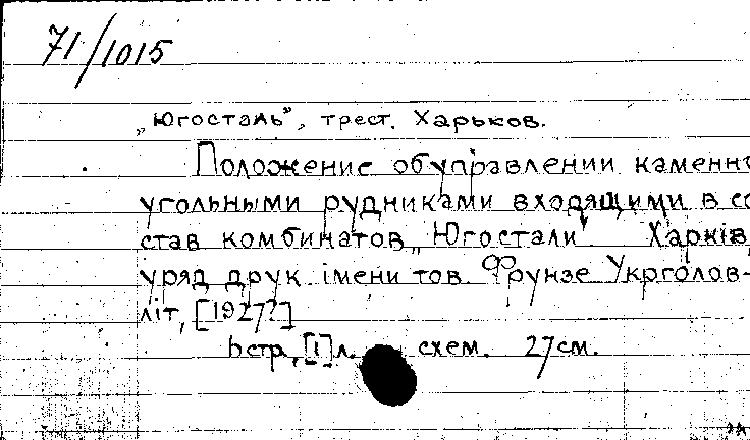 71/1015
„Югосталь”, трест. Харьков.
Положение об управлении каменно
угольными рудниками входящими в со
став комбинатов „Югостали” Харкiв,
уряд друк. iменi тов. Фрунзе Укрголов-
лiт, [1927?]
6 стр, [1] л. схем. 27 см.